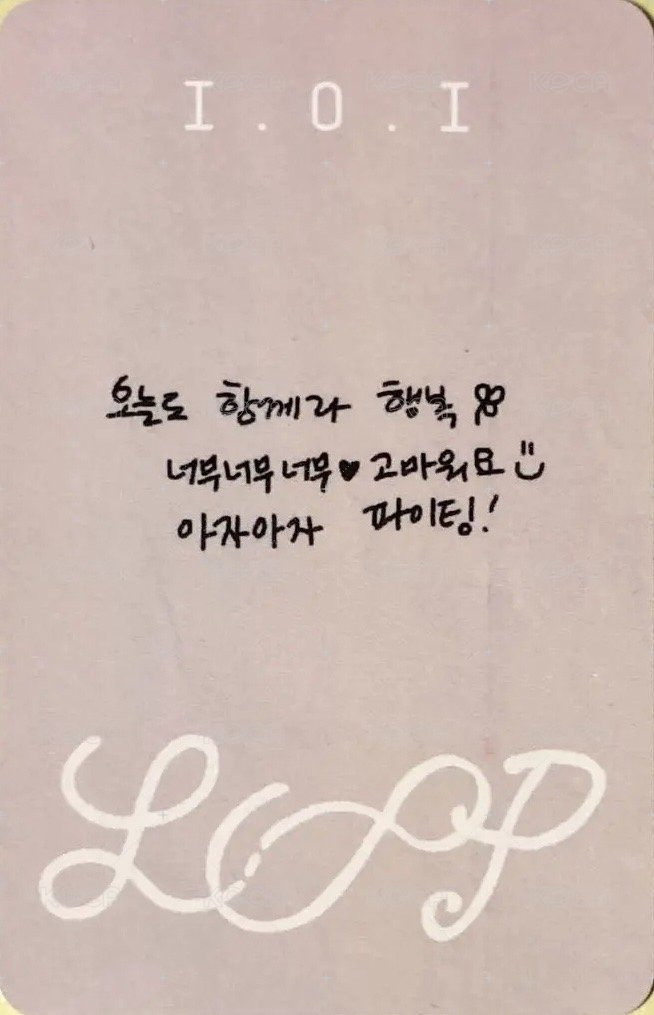 I.O.I
오늘도 함께라 행복
너무너무너무♥고마워요
아자아자 파이팅!
LOOP